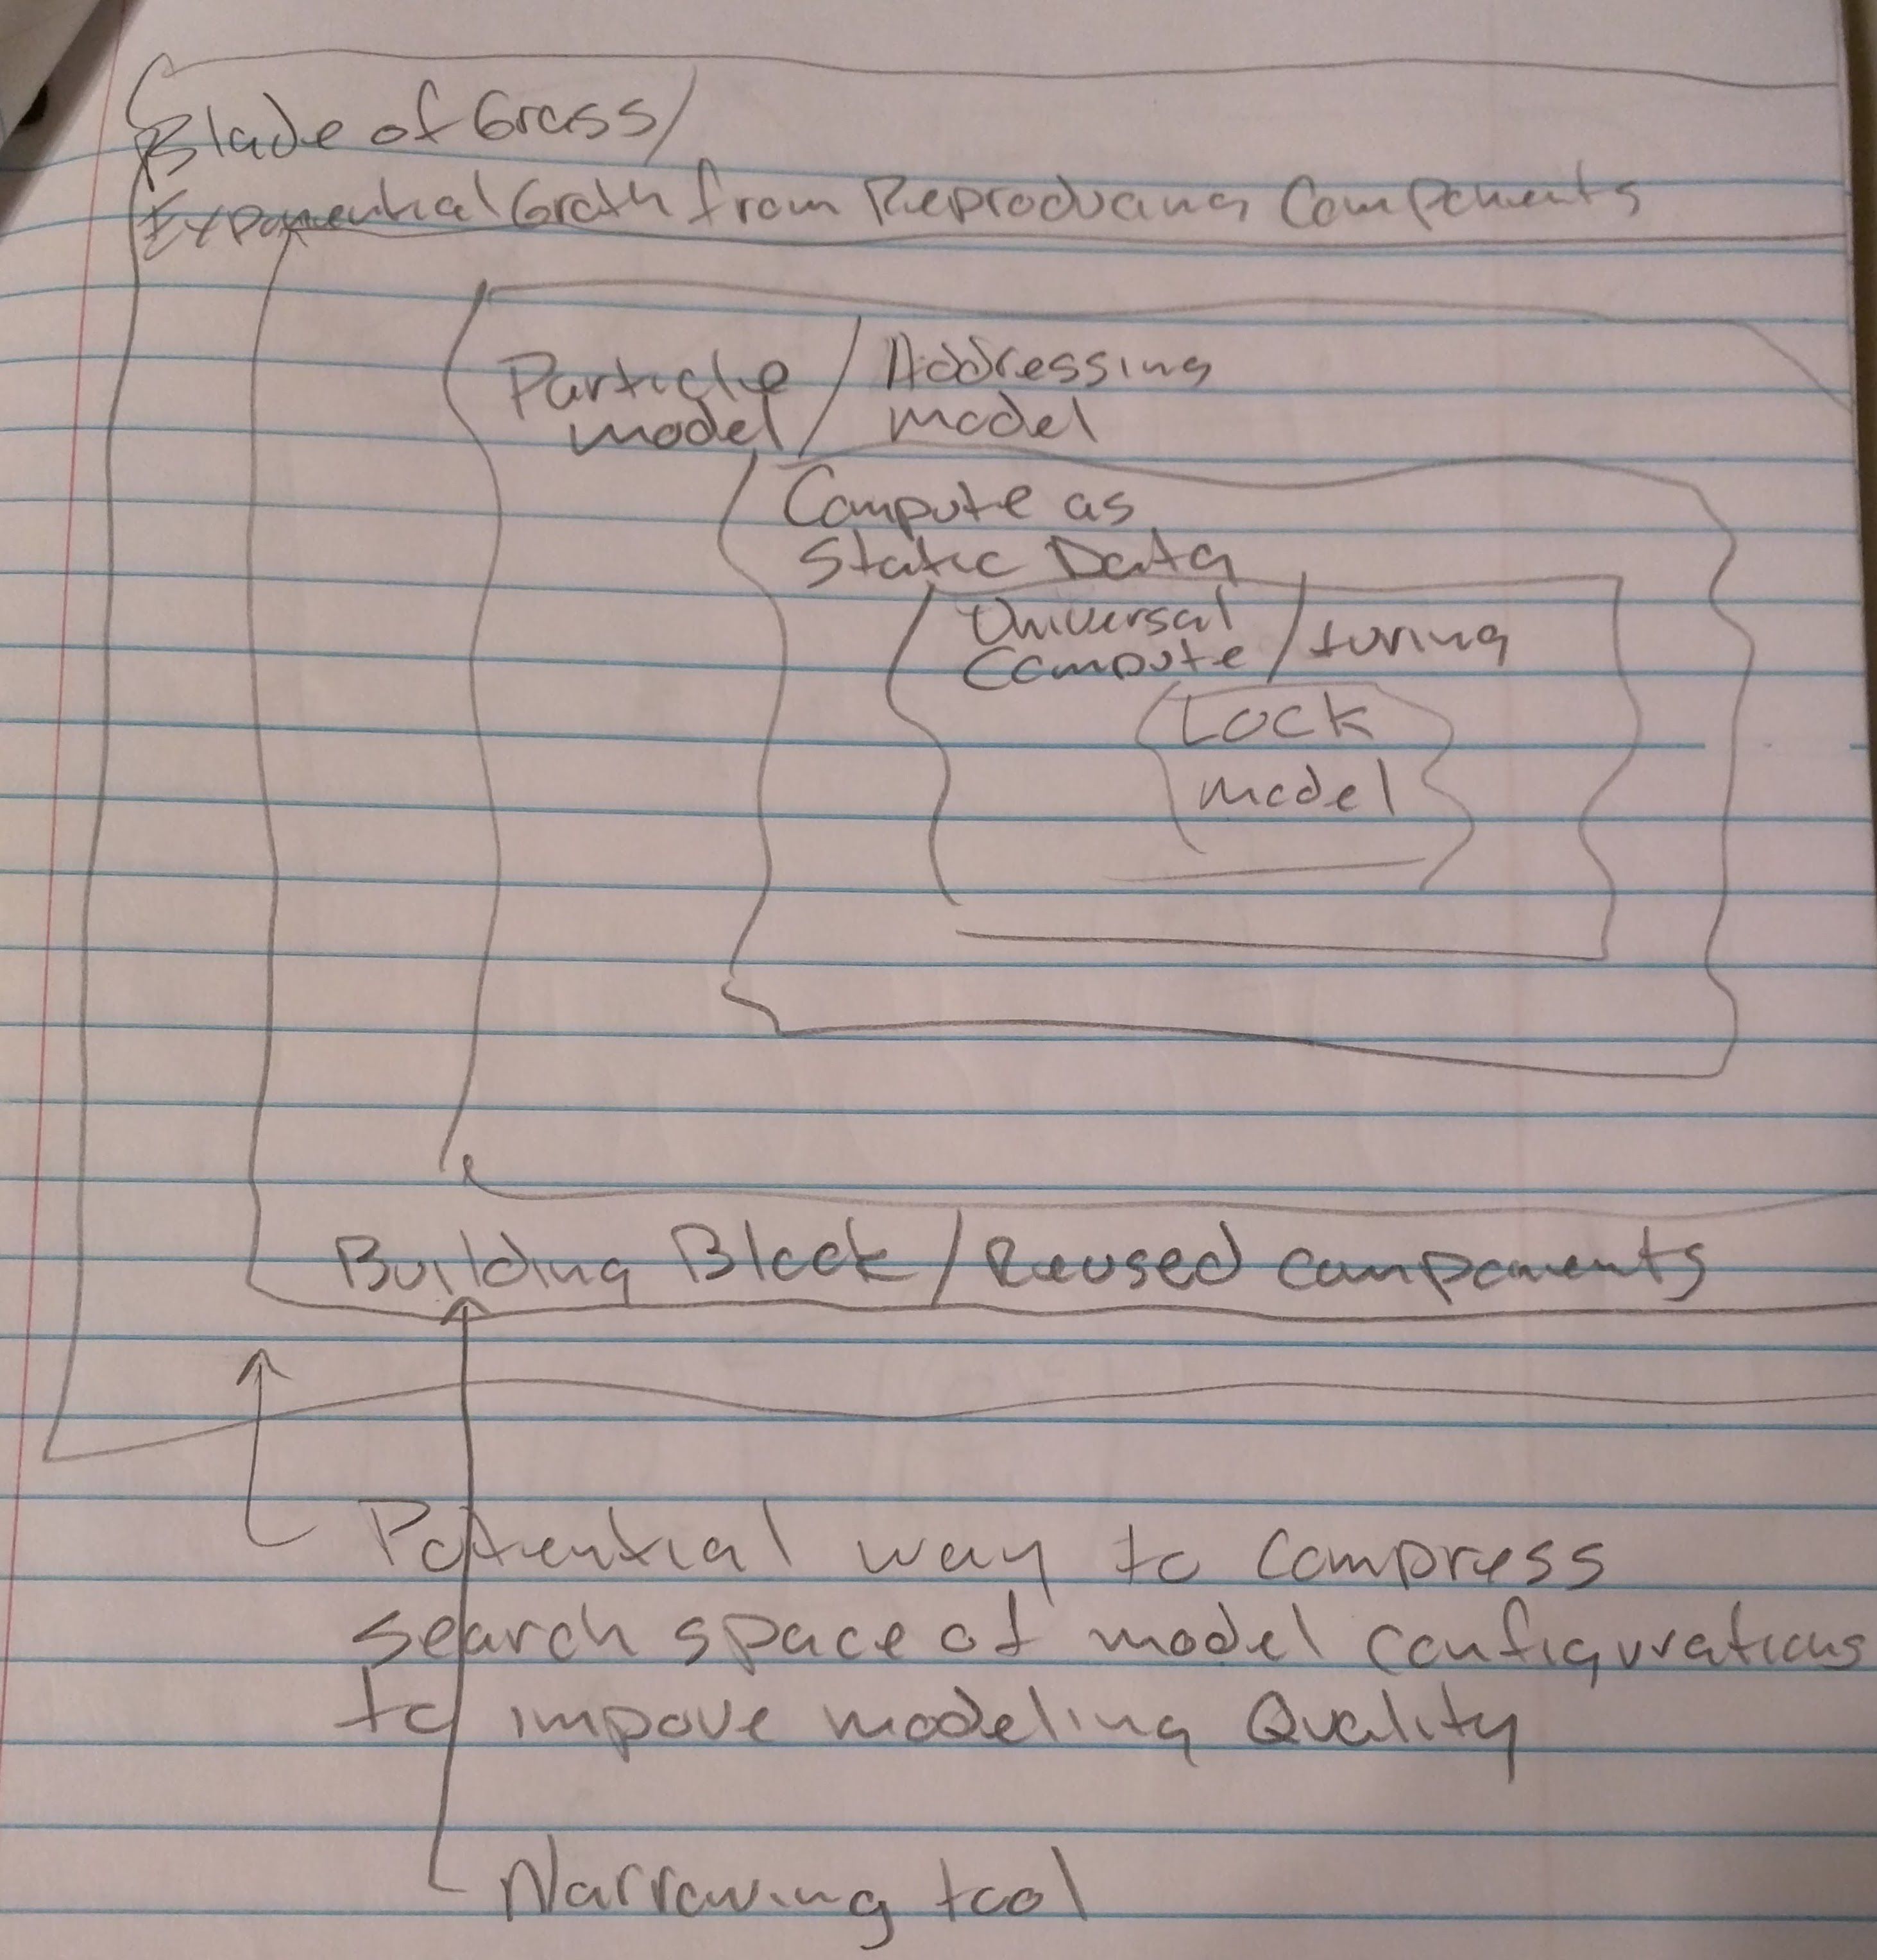 Blade of Grass/
Exponential Groth from Reproducing Components
Particle / Addressing
model / model
Compute as
Static Data
Universal
Compute / turing
Lock
model
Building Block / Reused components
Potential way to compress
search space of model configurations
to impove modeling Quality
Narrowing tool